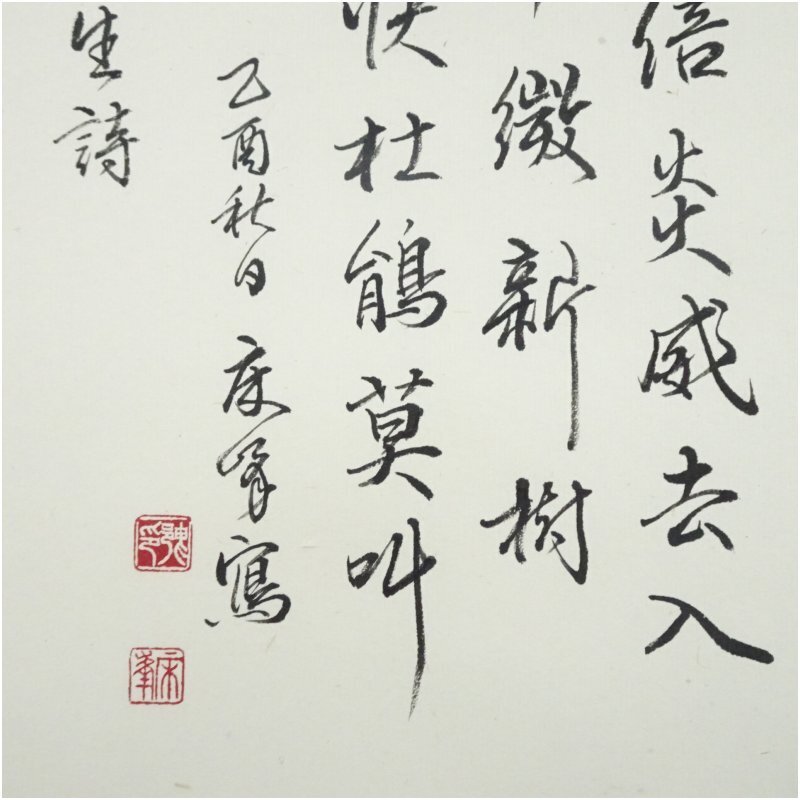 倍炎威去入
微新樹
杜鵑莫叫
乙酉秋日 峯寫
生詩